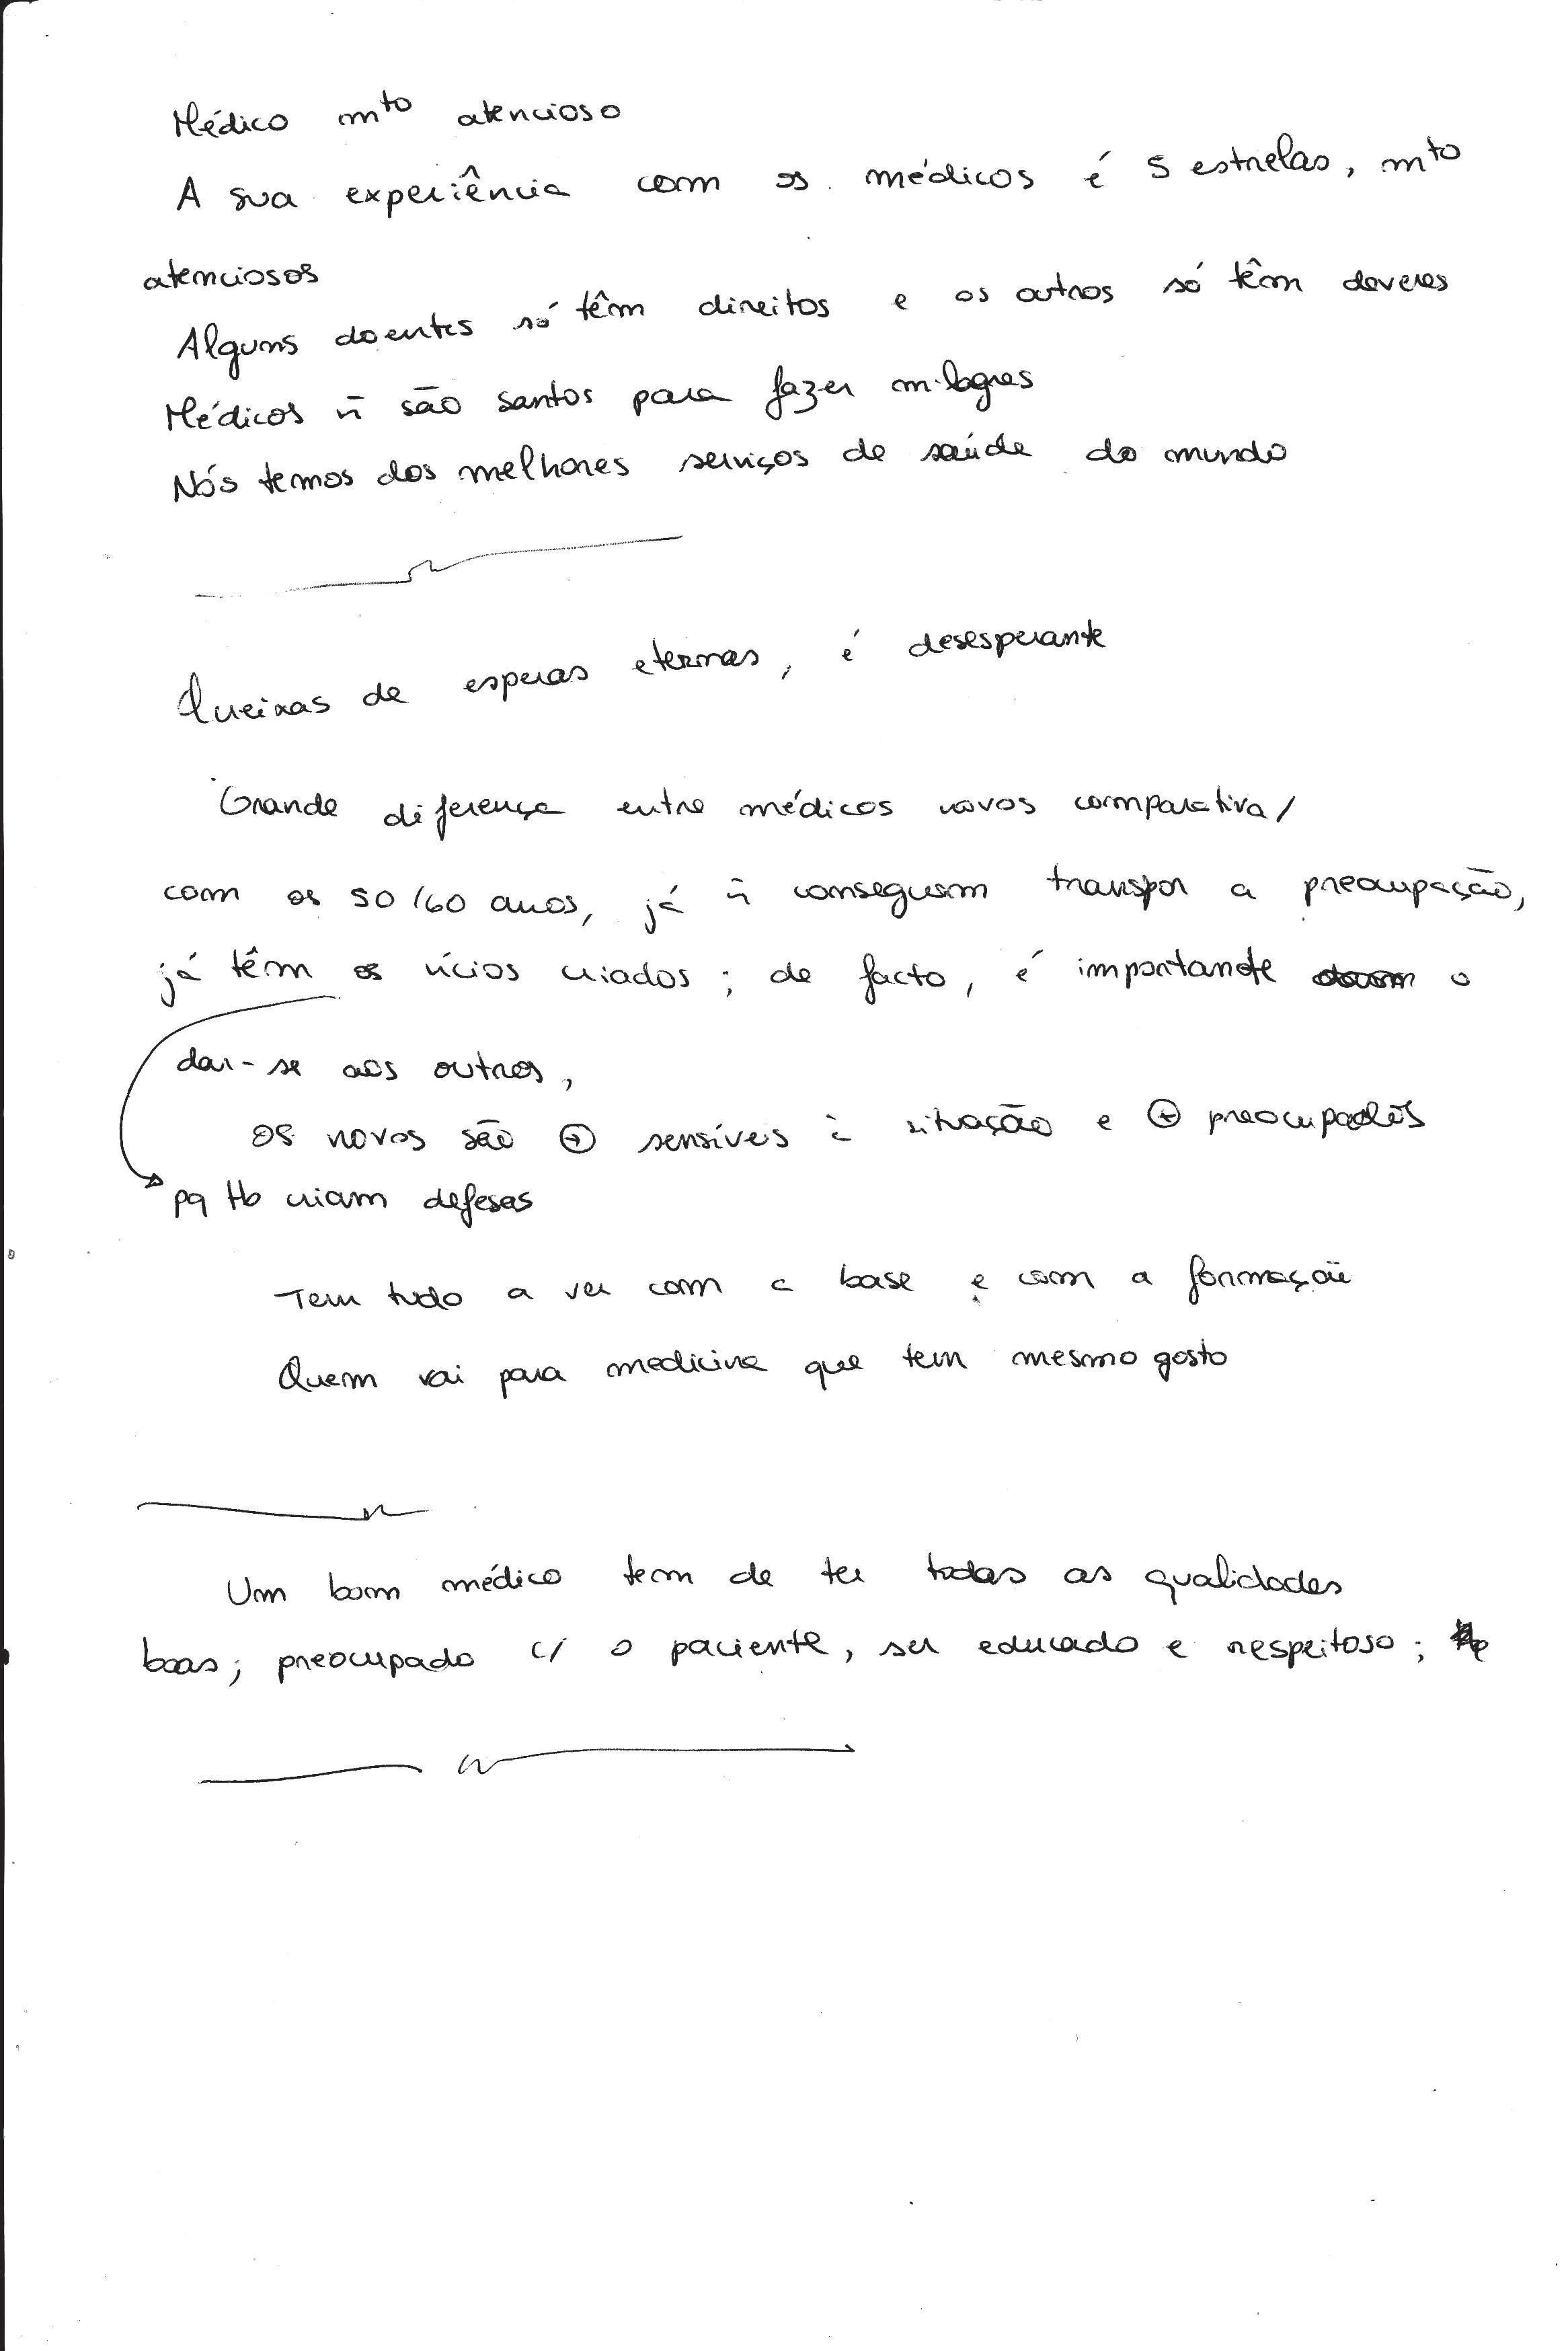 Médico mto atencioso
A sua experiência com os médicos é 5 estrelas, mto
atenciosos
Alguns doentes só têm direitos e os outros só têm deveres
Médicos ñ são santos para fazer milagres
Nós temos dos melhores serviços de saúde do mundo
Queixas de esperas eternas, é desesperante
Grande diferença entre médicos novos comparativa/
com os 50/60 anos, já ñ conseguem transpor a preocupação,
já têm os vícios criados; de facto, é importante o
dar-se aos outros,
os novos são + sensíveis à situação e + preocupados
pq tb criam defesas
Tem tudo a ver com a base e com a formação
Quem vai para medicina que tem mesmo gosto
Um bom médico tem de ter todas as qualidades
boas; preocupado c/ o paciente, ser educado e respeitoso;